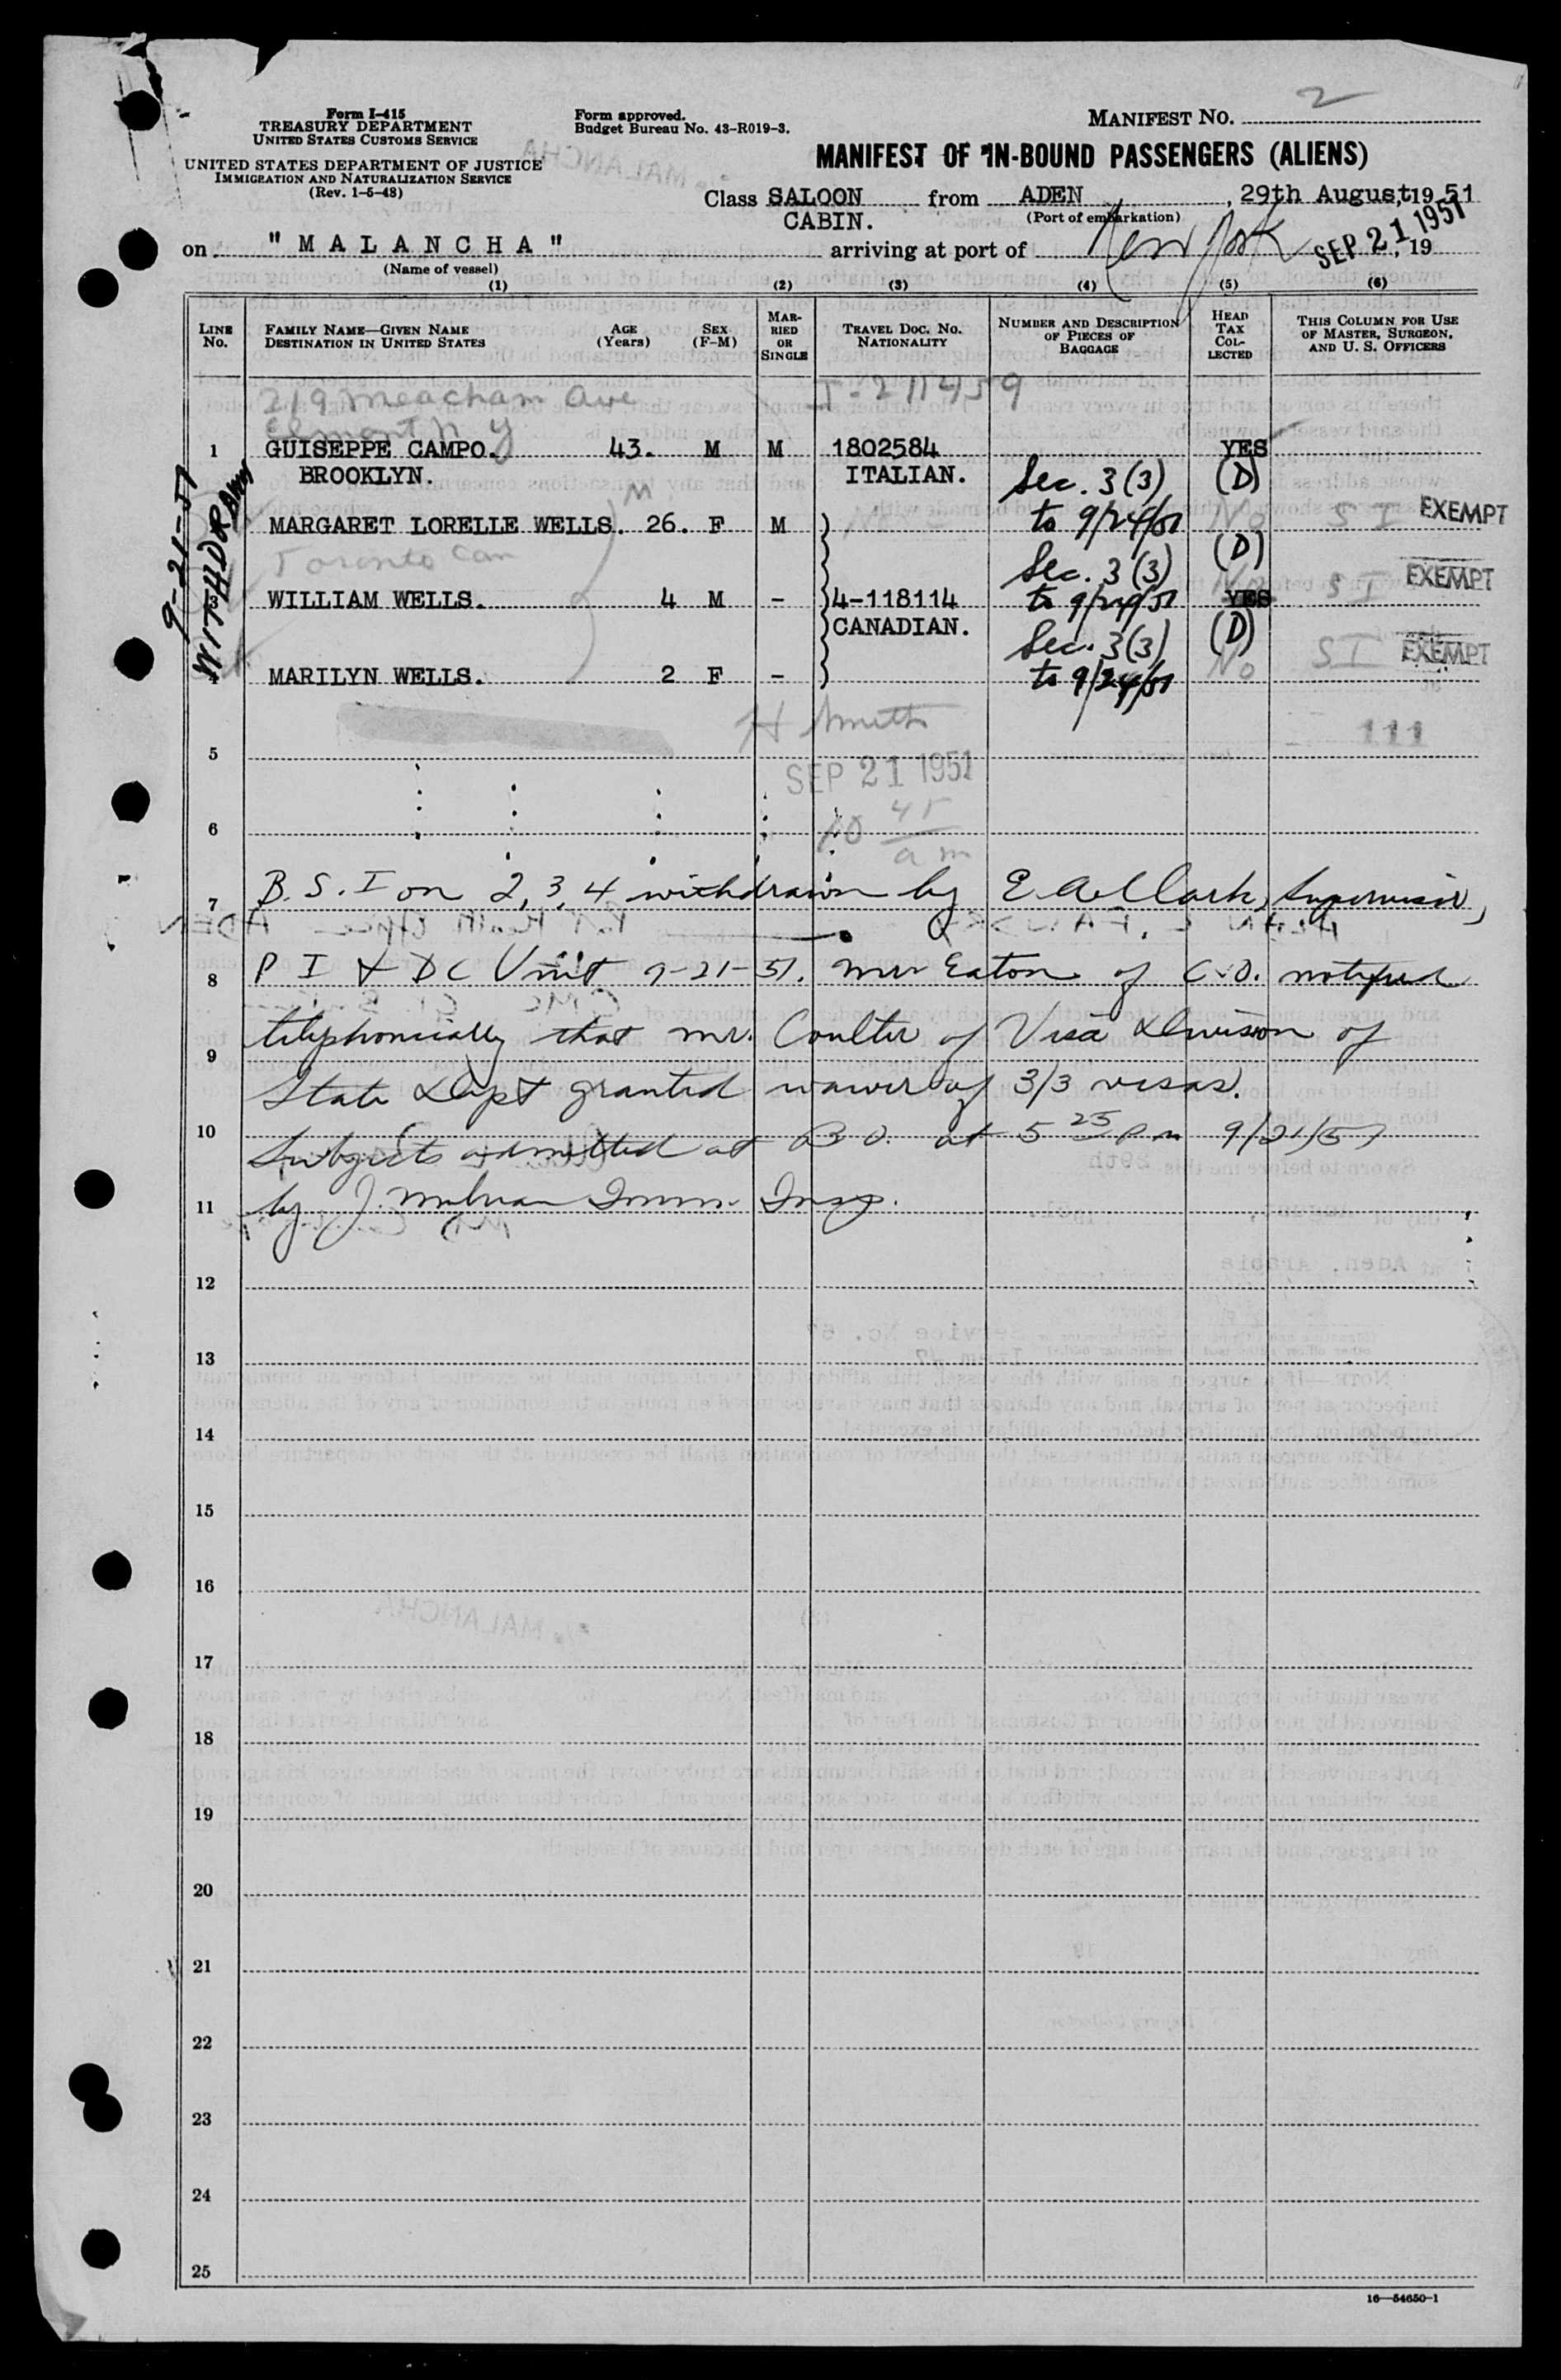 Form I-415
TREASURY DEPARTMENT
UNITED STATES CUSTOMS SERVICE
UNITED STATES DEPARTMENT OF JUSTICE
IMMIGRATION AND NATURALIZATION SERVICE
(Rev. 1-5-48)
Form approved.
Budget Bureau No. 43-R019-3.
MANIFEST NO. 2
MANIFEST OF IN-BOUND PASSENGERS (ALIENS)
Class SALOON from ADEN, 29th August, 1951
CABIN. (Port of embarkation)
on "MALANCHA" arriving at port of New York SEP 21 1951, 19
(Name of vessel)
(1) (2) (3) (4) (5) (6)
LINE No. FAMILY NAME—GIVEN NAME DESTINATION IN UNITED STATES AGE (Years) SEX (F-M) MARRIED OR SINGLE TRAVEL DOC. NO. NATIONALITY NUMBER AND DESCRIPTION OF PIECES OF BAGGAGE HEAD TAX COLLECTED THIS COLUMN FOR USE OF MASTER, SURGEON, AND U. S. OFFICERS
219 Meacham Ave I-211459
Elmont N Y
1 GUISEPPE CAMPO. 43. M M 1802584 YES
BROOKLYN. ITALIAN. Sec. 3(3) (D)
MARGARET LORELLE WELLS. 26. F M to 9/24/51 No S I EXEMPT
Toronto Can Sec. 3(3) (D)
3 WILLIAM WELLS. 4 M - 4-118114 to 9/24/51 No YES S I EXEMPT
CANADIAN. Sec. 3(3) (D)
4 MARILYN WELLS. 2 F - to 9/24/51 No S I EXEMPT
9-21-51
WITHDRAWN
H Smith
111
5
SEP 21 1951
6
10 45 am
7 B.S.I on 2, 3, 4 withdrawn by E A Clark, Supervisor,
8 P I & DC Unit 9-21-51. Mr Eaton of C.O. notified
9 telephonically that Mr. Coulter of Visa Division of
10 State Dept granted waiver of 3/3 visas.
Subjects admitted at B O. at 5 25 pm 9/21/51
11 by J. Mulvan Imm. Insp.
12
13
14
15
16
17
18
19
20
21
22
23
24
25
16—54650-1